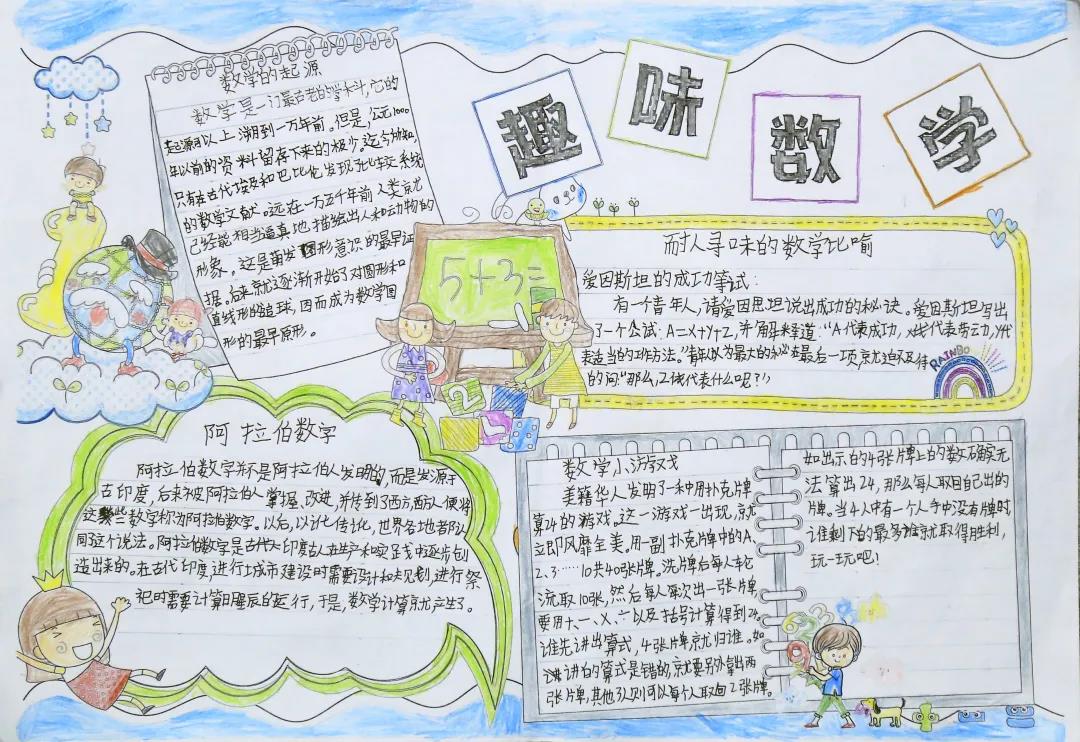 趣味数学
数学的起源
数学是一门最古老的学科,它的
起源可以上溯到一万年前。但是,公元1000
年以前的资料留存下来的极少。迄今所知,
只有在古代埃及和巴比伦发现了比较系统
的数学文献。远在一万五千年前人类就
已经能相当逼真地描绘出人和动物的
形象。这是萌发图形意识的最早证
据。后来就逐渐开始了对圆形和
直线形的追求,因而成为数学图
形的最早原形。
5+3=
2
耐人寻味的数学比喻
爱因斯坦的成功等式:
有一个青年人,请爱因思坦说出成功的秘诀。爱因斯坦写出
了一个公试:A=X+Y+Z,并解释道:“A代表成功,X代表劳动,Y代
表适当的工作方法。”青年以为最大的秘诀在最后一项,就迫不及待
的问:“那么,Z代表什么呢?”
RAINBO
阿拉伯数字
阿拉伯数字称是阿拉伯人发明的,而是发源于
古印度,后来被阿拉伯人掌握、改进,并传到了西方,西方人便将
这些数字称为阿拉伯数字。以后,以讹传讹,世界各地都认
同这个说法。阿拉伯数字是古代印度人在生产和实践中逐步创
造出来的。在古代印度,进行城市建设时需要设计和规划,进行祭
祀时需要计算日月星辰的运行,于是,数学计算就产生了。
数学小游戏
美籍华人发明了一种用扑克牌
算24的游戏。这一游戏一出现,就
立即风靡全美。用一副扑克牌中的A、
2、3……10共40张牌。洗牌后每人轮
流取10张,然后每人每次出一张牌,
要用+、一、X、÷以及括号计算得到24。
谁先讲出算式,4张牌就归谁。如
讲的算式是错的,就要另外拿出两
张牌,其他3人则可以每个人取回2张牌。
如出示的4张牌上的数确实无
法算出24,那么每人取回自己出的
牌。当4人中有一个人手中没有牌时
谁剩下的最多谁就取得胜利,
玩一玩吧!